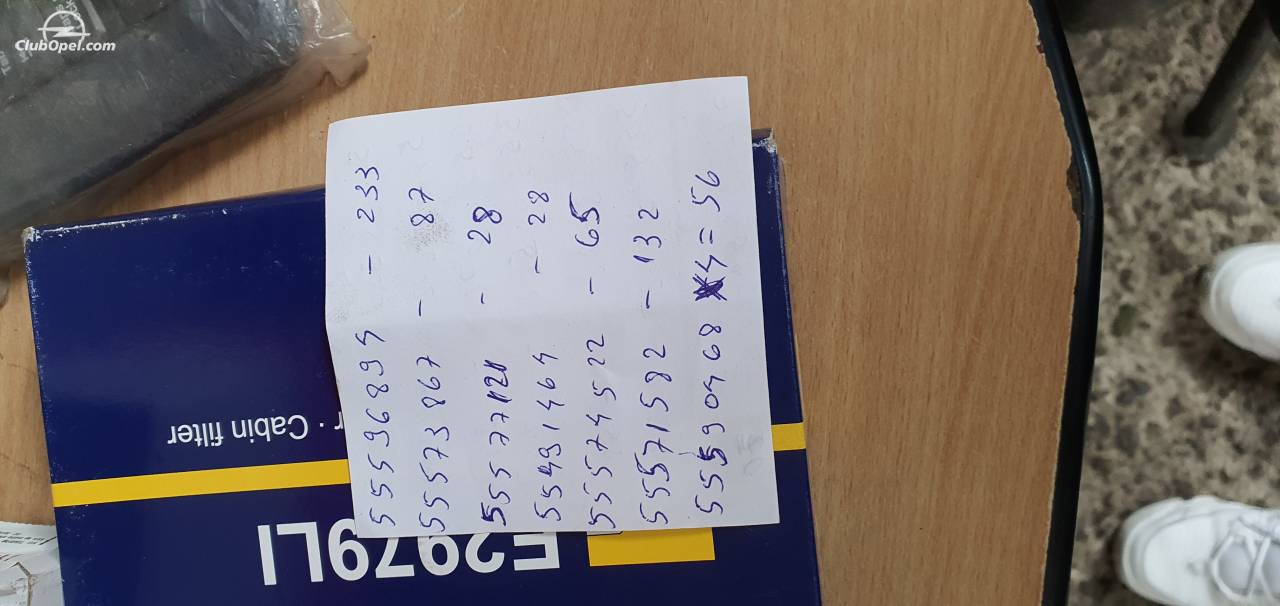 ClubOpel.com
55596894 - 233
55573867 - 87
55577121 - 28
55491464 - 28
55574522 - 65
55571582 - 132
55590468 x4=56
· Cabin filter
E2979LI